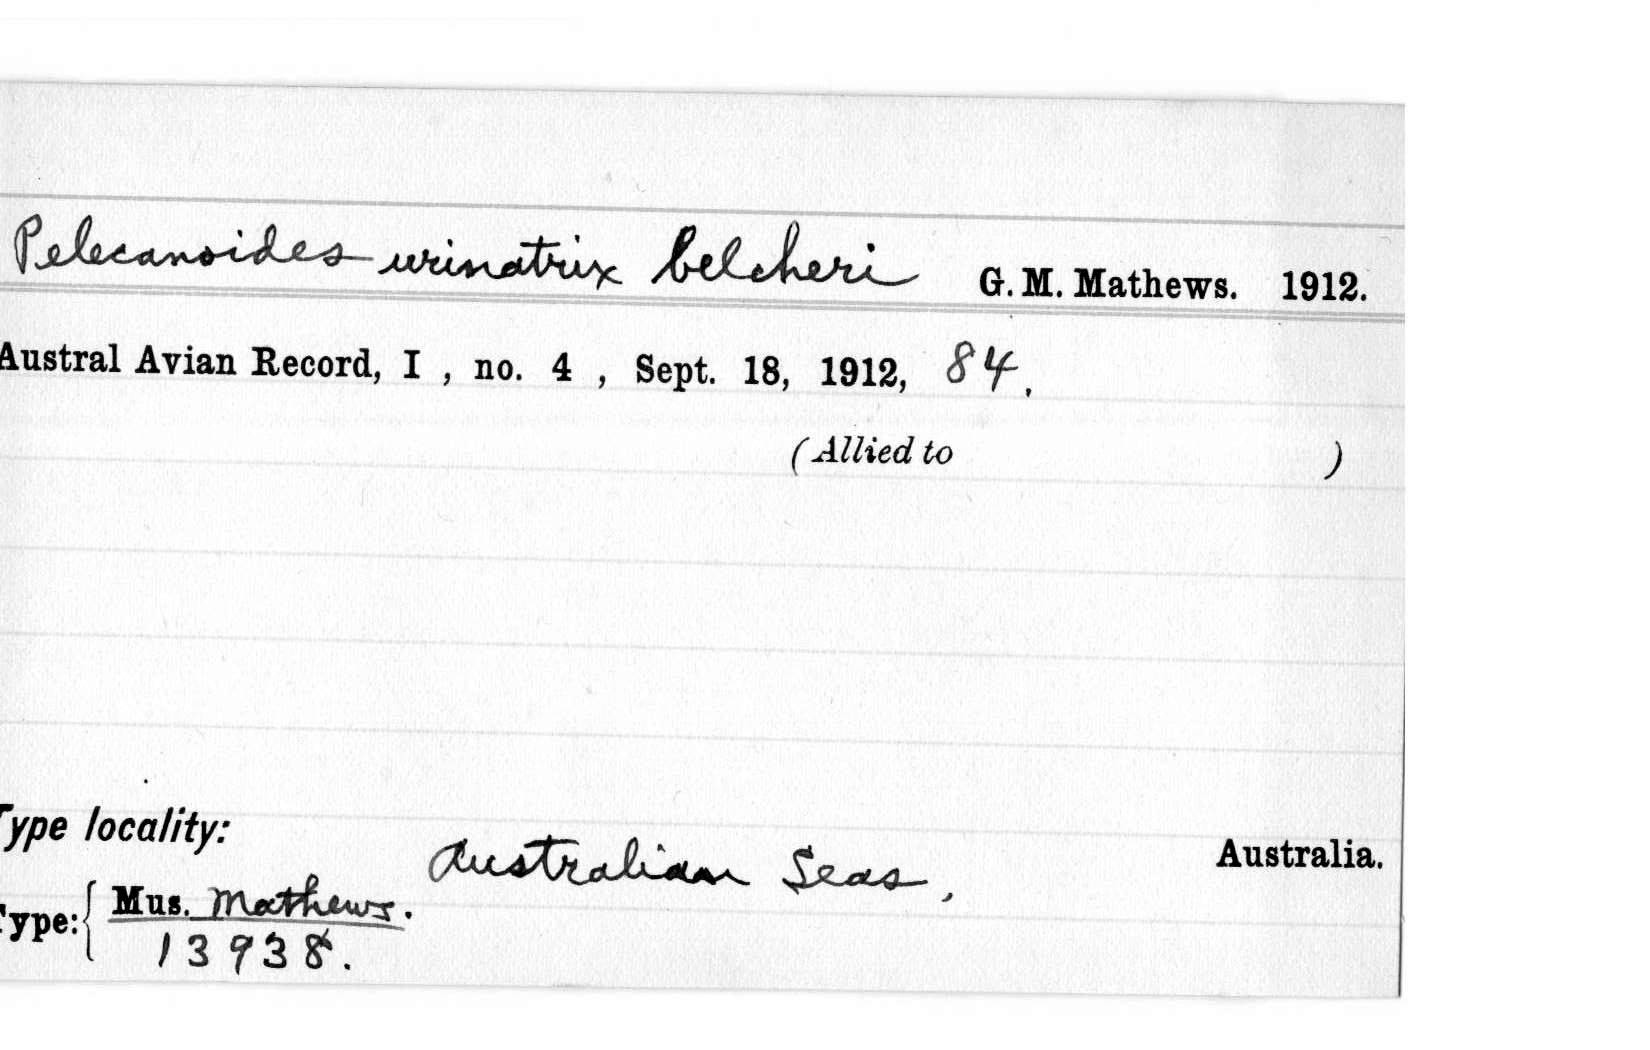 Pelecanoides urinatrix belcheri G. M. Mathews. 1912.
Austral Avian Record, I , no. 4 , Sept. 18, 1912, 84.
(Allied to )
Type locality:
Australian Seas, Australia.
Type: { Mus. Mathews.
13938.